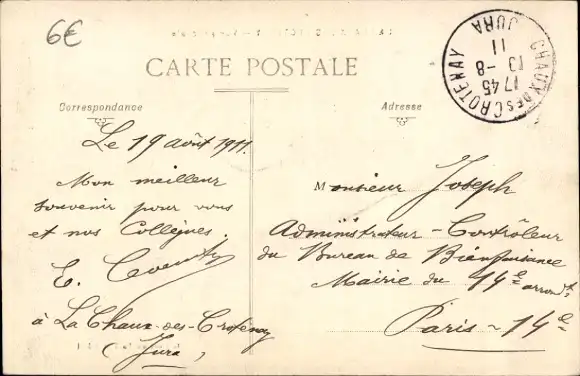 6€
CARTE POSTALE
Correspondance
Adresse
CHAUX DES CROTENAY
JURA
17 45
19 - 8
11
Le 19 août 1911.
Mon meilleur
souvenir pour vous
et nos Collègues.
E.
à La Chaux-des-Crotenay
Jura,
Monsieur Joseph
Administrateur-Contrôleur
du Bureau de Bienfaisance
Mairie du 14e arrondt
Paris - 14e